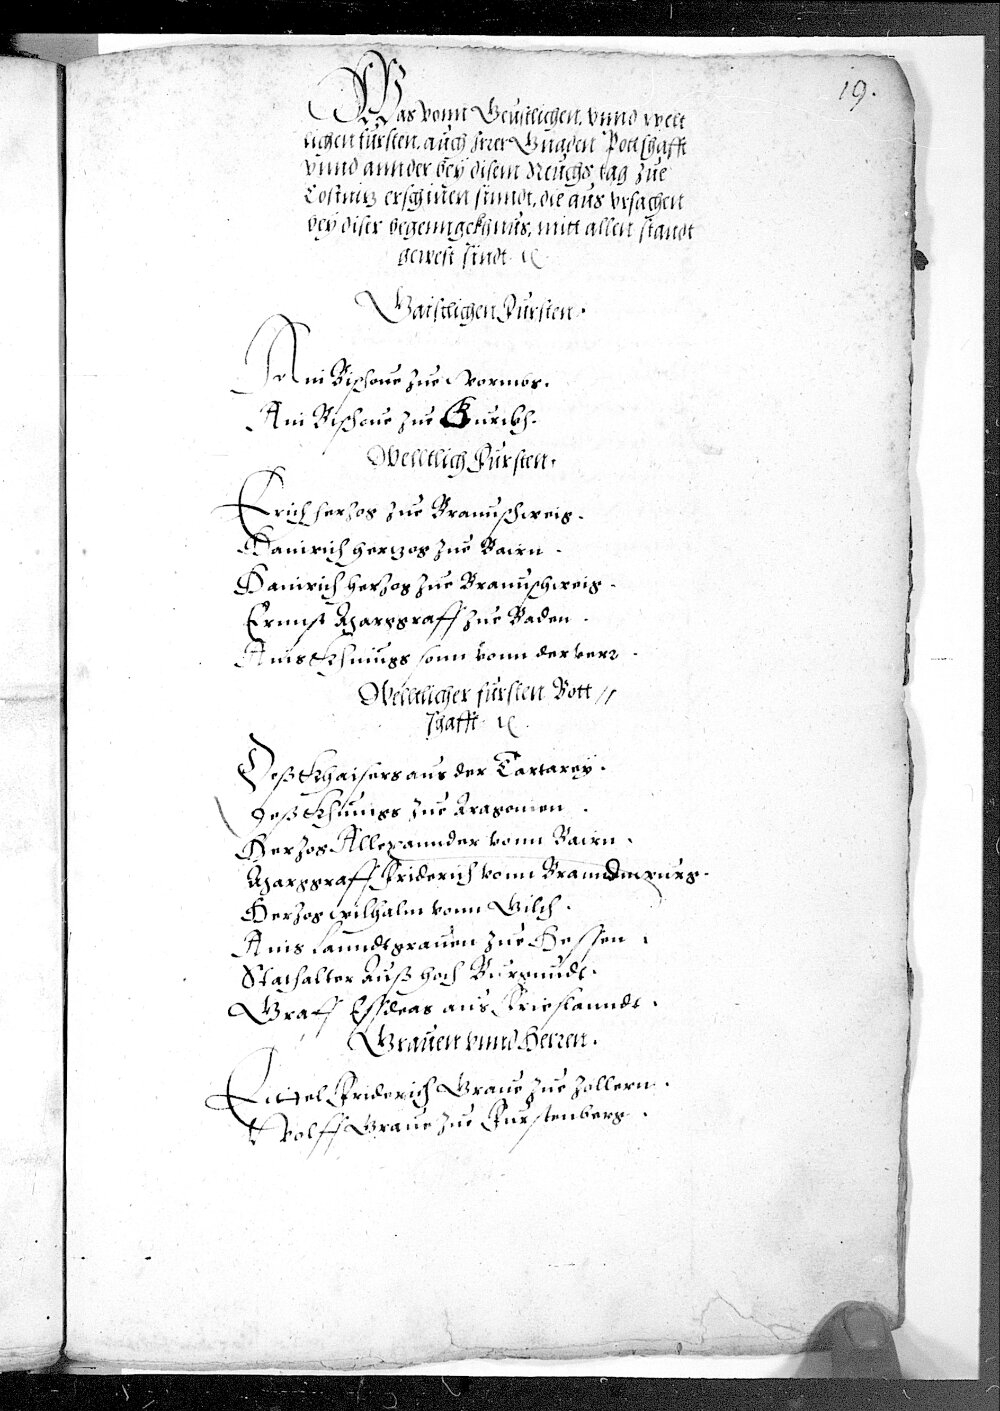 19.
Was vonn Geistlichen, vnnd welt
lichen fürsten, auch Irer Gnaden Pottschafft
vnnd annder bey disem Reichs tag zue
Costnitz erschinen sinndt, die aus vrsachen
bey diser begenngckhnus, nitt allen standt
gewest sindt ꝛc
Gaistlichen Fürsten.
Ain Bischoue zue Wormbs.
Ain Bischoue zue Gurckh.
Welltlich Fürsten.
Erich herzog zue Braunschweig.
Hainrich Hertzog zue Bairn.
Hainrich Herzog zue Braunschweig.
Ernnst Marggraff zue Baden.
Ains Khunigs sonn vonn der
Welltlicher fürsten Bott //
schafft ꝛc.
Deß Khaisers aus der Tartarey.
Deß Khunigs zue Aragonien.
Herzog Allexannder vonn Bairn.
Marggraff Friderich vonn Branndenpurg.
Herzog wilhalm vonn Gilch.
Ains Lanndtgrauen zue Hessen.
Stathalter Auß Hoch Burgundt.
Graff Essdras aus Frieslanndt.
Grauen vnnd Herren.
Eittel Friderich Graue zue Zollern.
Wolff Graue zue Fürstenberg.